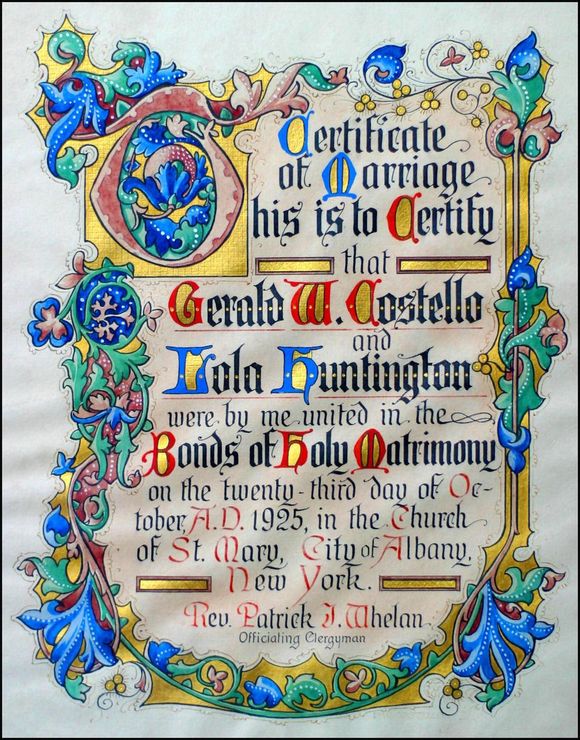 Certificate
of Marriage
This is to Certify
that
Gerald W. Costello
and
Lola Huntington
were by me united in the
Bonds of Holy Matrimony
on the twenty-third day of Oc-
tober, A.D. 1925, in the Church
of St. Mary, City of Albany,
New York.
Rev. Patrick J. Whelan
Officiating Clergyman